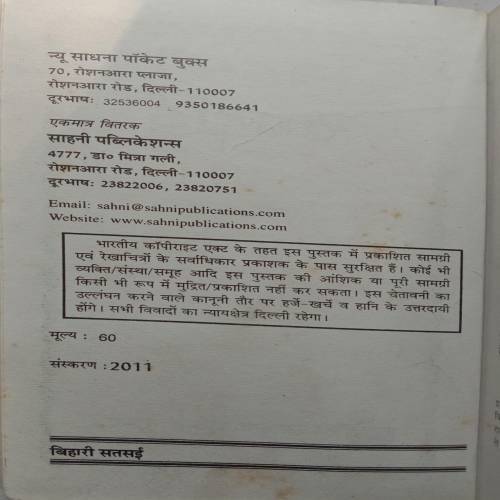 न्यू साधना पॉकेट बुक्स
70, रोशनआरा प्लाजा,
रोशनआरा रोड, दिल्ली-110007
दूरभाषः 32536004 , 9350186641
एकमात्र वितरक
साहनी पब्लिकेशन्स
4777, डा० मित्रा गली,
रोशनआरा रोड, दिल्ली-110007
दूरभाषः 23822006, 23820751
Email: sahni@sahnipublications.com
Website: www.sahnipublications.com
भारतीय कॉपीराइट एक्ट के तहत इस पुस्तक में प्रकाशित सामग्री
एवं रेखाचित्रों के सर्वाधिकार प्रकाशक के पास सुरक्षित हैं। कोई भी
व्यक्ति/संस्था/समूह आदि इस पुस्तक की आंशिक या पूरी सामग्री
किसी भी रूप में मुद्रित/प्रकाशित नहीं कर सकता। इस चेतावनी का
उल्लंघन करने वाले कानूनी तौर पर हर्जे-खर्चे व हानि के उत्तरदायी
होंगे। सभी विवादों का न्यायक्षेत्र दिल्ली रहेगा।
मूल्य : 60
संस्करण : 2011
बिहारी सतसई